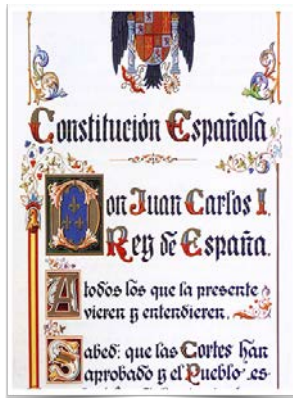 Constitución Española
Don Juan Carlos I,
Rey de España.
A todos los que la presente
vieren y entendieren,
Sabed: que las Cortes han
aprobado y el Pueblo es-